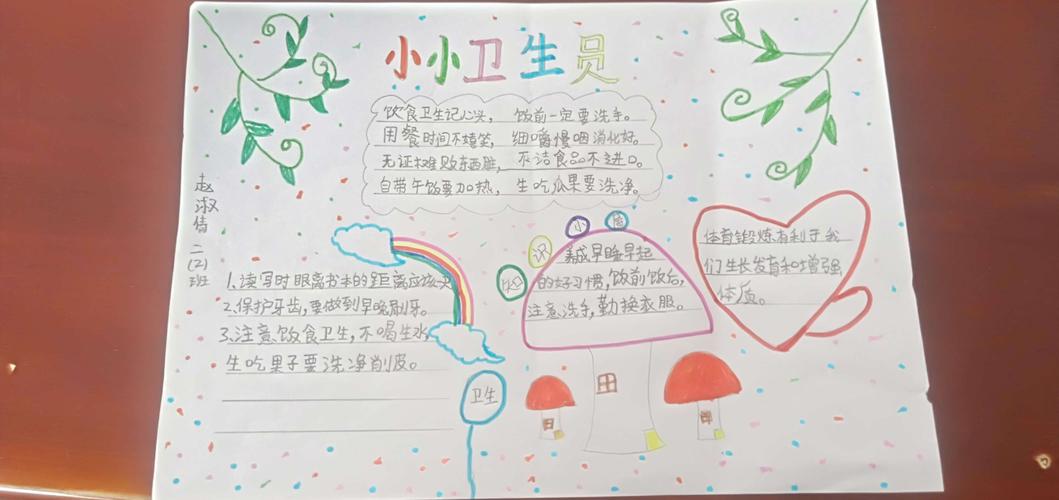 小小卫生员
饮食卫生记心头，饭前一定要洗手。
用餐时间不嬉笑，细嚼慢咽消化好。
无证摊贩东西脏，不洁食品不进口。
自带午饭要加热，生吃瓜果要洗净。
赵淑倩 二(2)班
1、读写时眼离书本的距离应该
2、保护牙齿，要做到早晚刷牙。
3、注意饮食卫生，不喝生水，
生吃果子要洗净削皮。
卫生
知
识
小
养成早睡早起
的好习惯，饭前饭后，
注意洗手，勤换衣服。
体育锻炼有利于我
们生长发育和增强
体质。